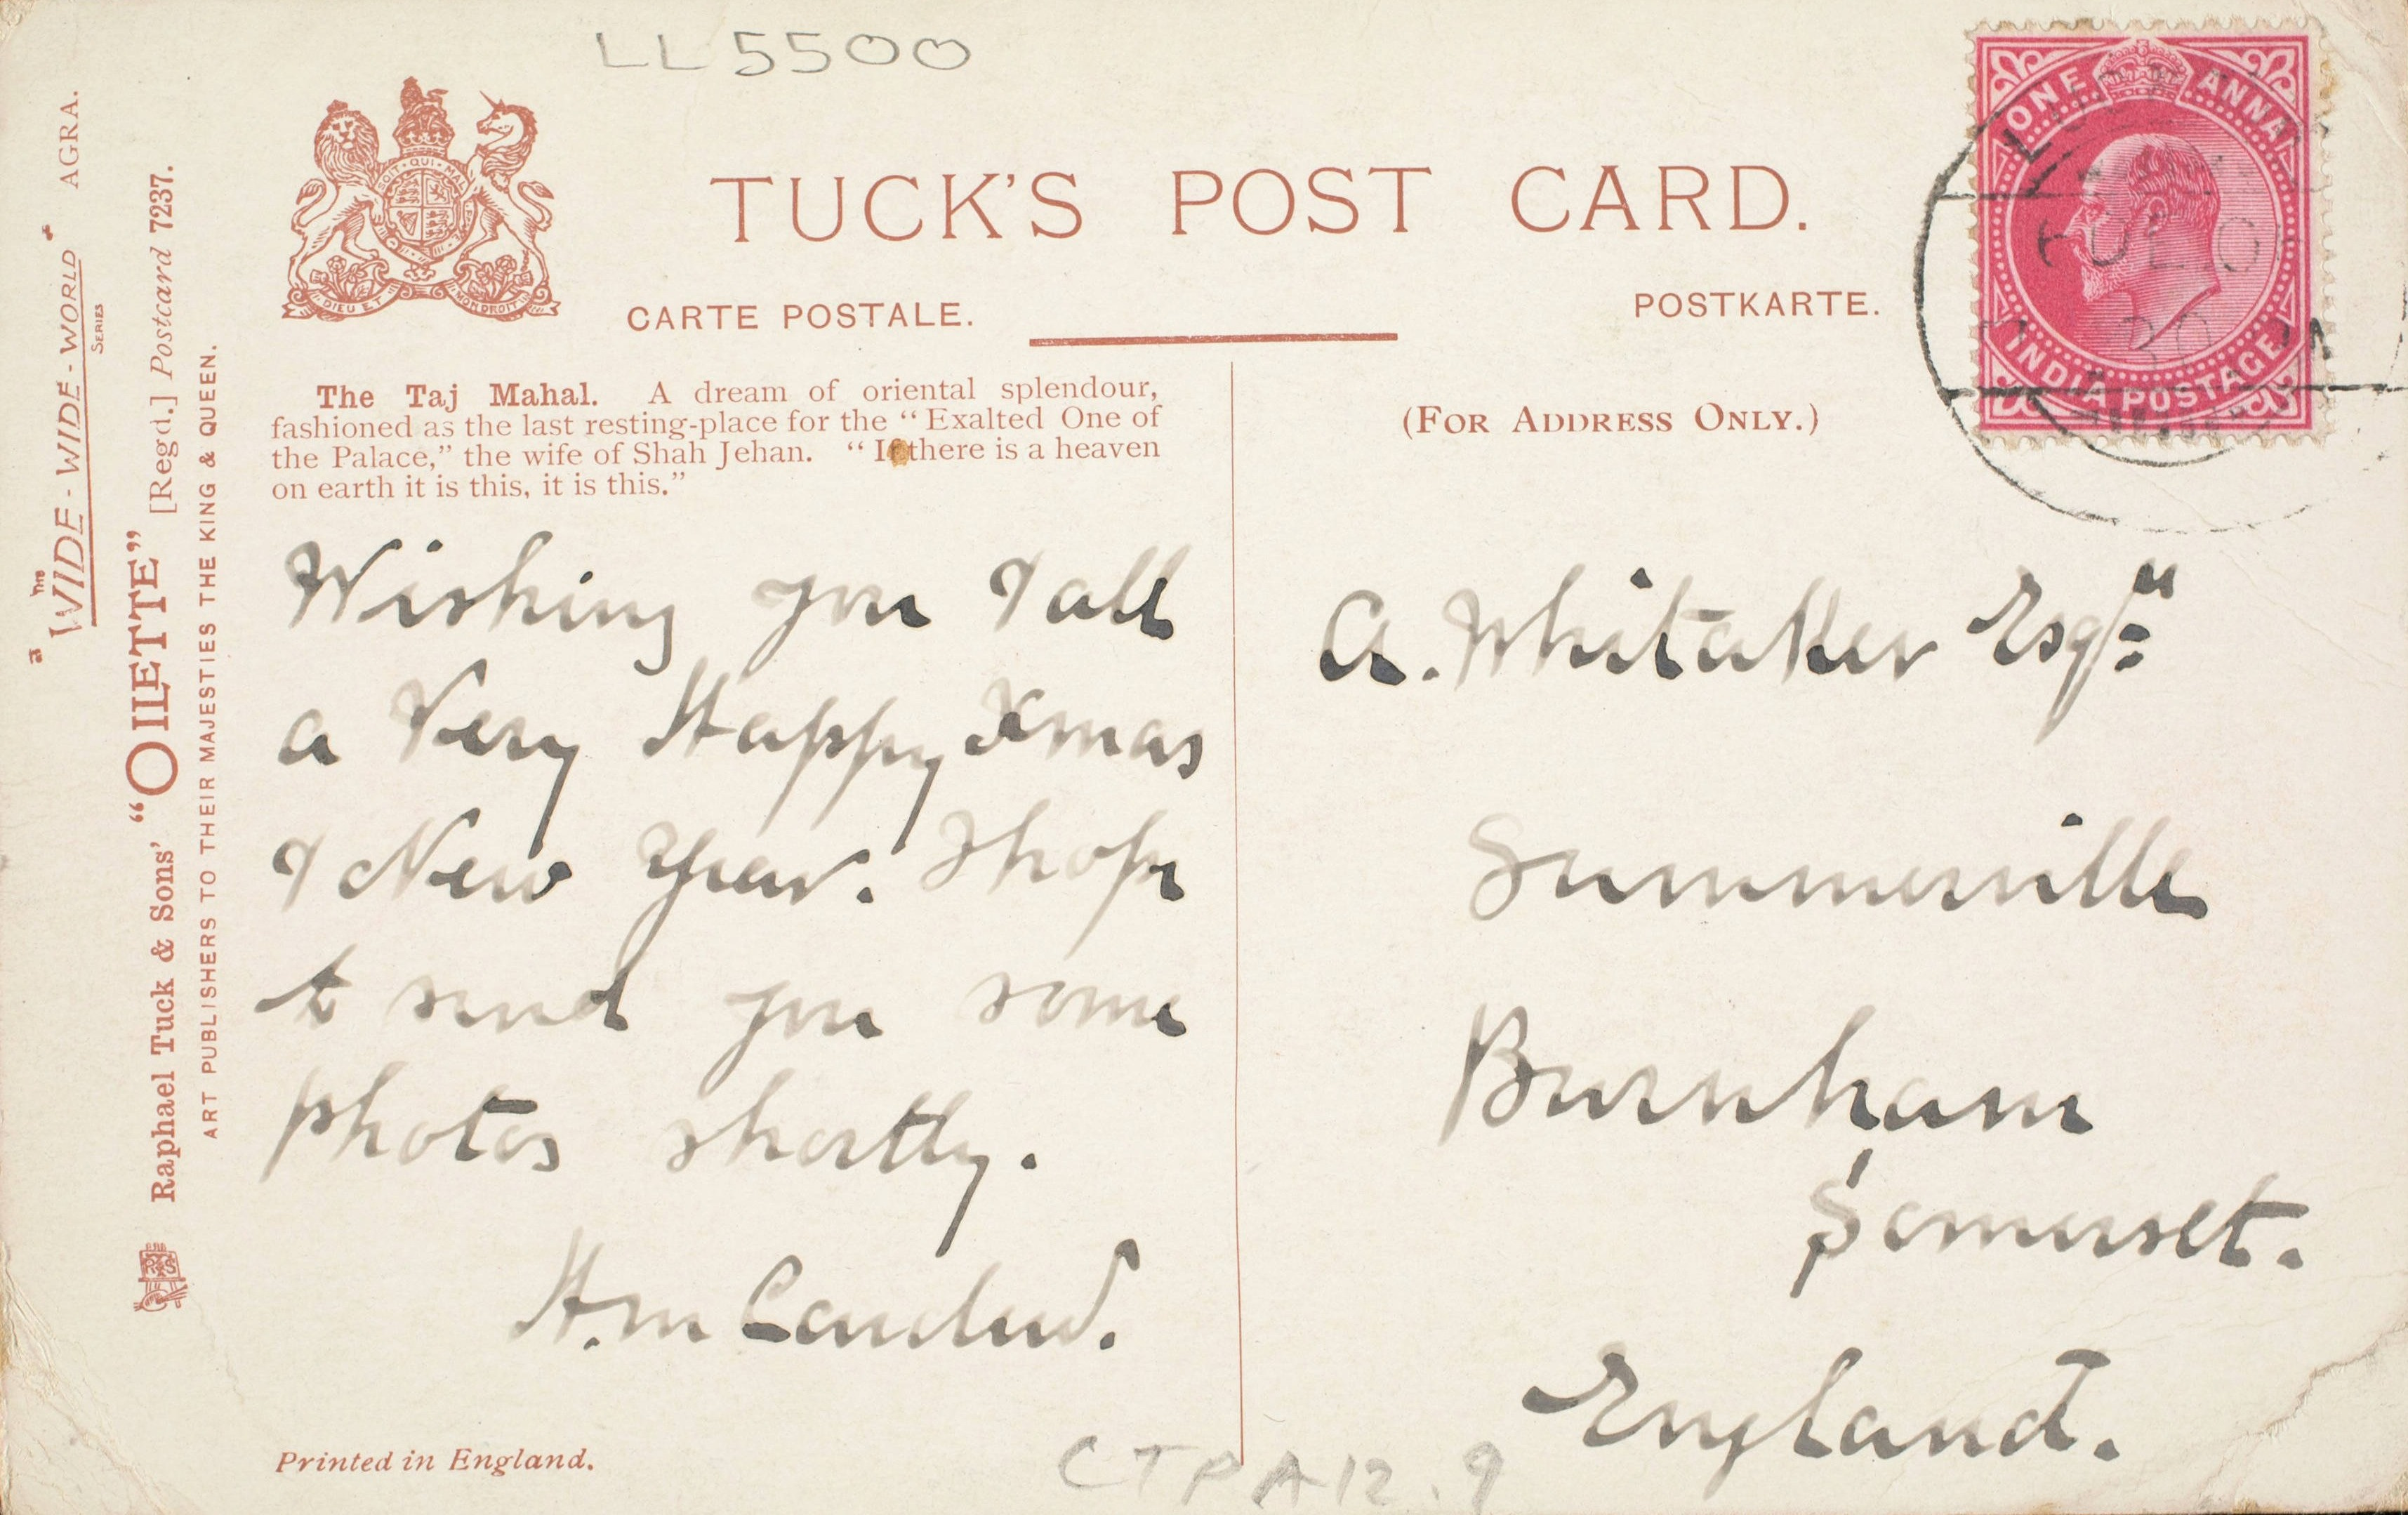 LL5500
TUCK'S POST CARD.
CARTE POSTALE.
POSTKARTE.
The Taj Mahal. A dream of oriental splendour,
fashioned as the last resting-place for the “Exalted One of
the Palace,” the wife of Shah Jehan. “If there is a heaven
on earth it is this, it is this.”
Wishing you & all
a Very Happy Xmas
& New Year. I hope
to send you some
photos shortly.
H. m
Printed in England.
(FOR ADDRESS ONLY.)
A. Whitaker Esqre
Summerville
Burnham
Somerset.
England.
CTPA12.9
ONE ANNA
INDIA POSTAGE
TUE
30
SOIT QUI MAL
DIEU ET MON DROIT
"WIDE-WIDE-WORLD" AGRA.
SERIES
Raphael Tuck & Sons' “OILETTE” [Regd.] Postcard 7237.
ART PUBLISHERS TO THEIR MAJESTIES THE KING & QUEEN.